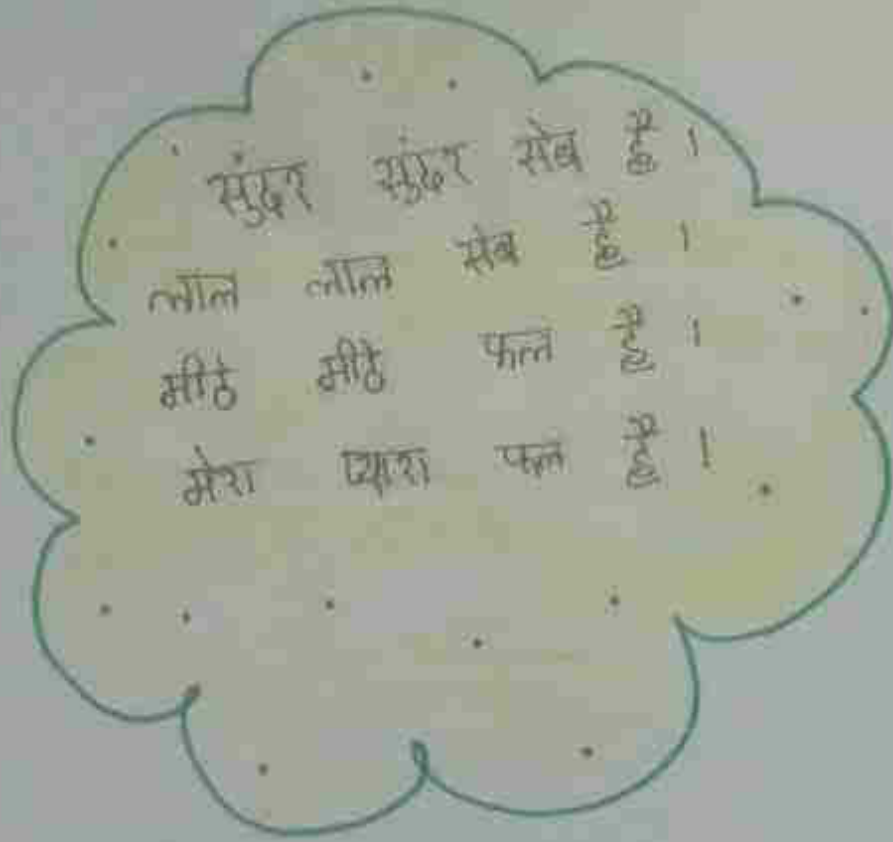 सुंदर सुंदर सेब है।
लाल लाल सेब है।
मीठे मीठे फल है।
मेरा प्यारा फल है।